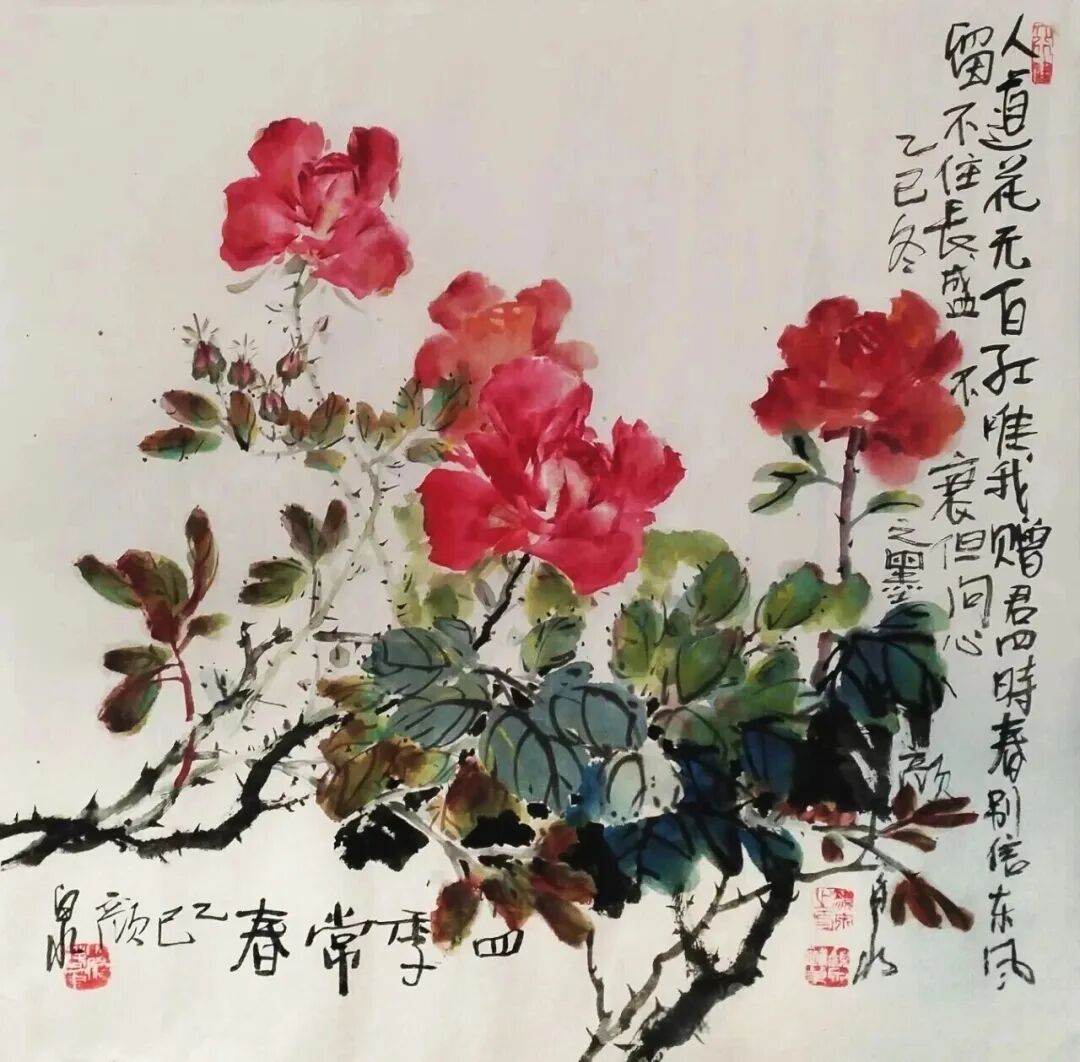 人道花无百红唯我赠君四時春别信东风
留不住长盛不衰但问心
乙巳冬之墨颜
四季常春乙巳颜泉